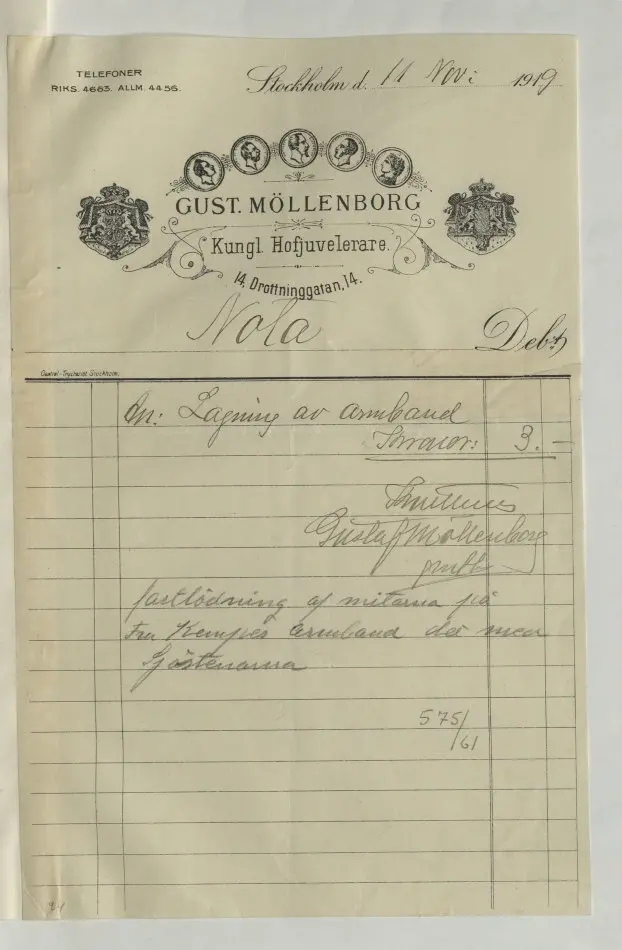 TELEFONER
RIKS. 4663. ALLM. 44 56.
Stockholm d. 11 Nov: 1919
GUST. MÖLLENBORG
Kungl. Hofjuvelerare.
14, Drottninggatan, 14.
Nota
Debt
Central-Tryckeriet, Stockholm.
An: Lagning av armband
Kronor: 3.—
Kvitteras
Gustaf Möllenborg
fastlödning af nitarna på
Fru Kempes armband det med
575/
/61